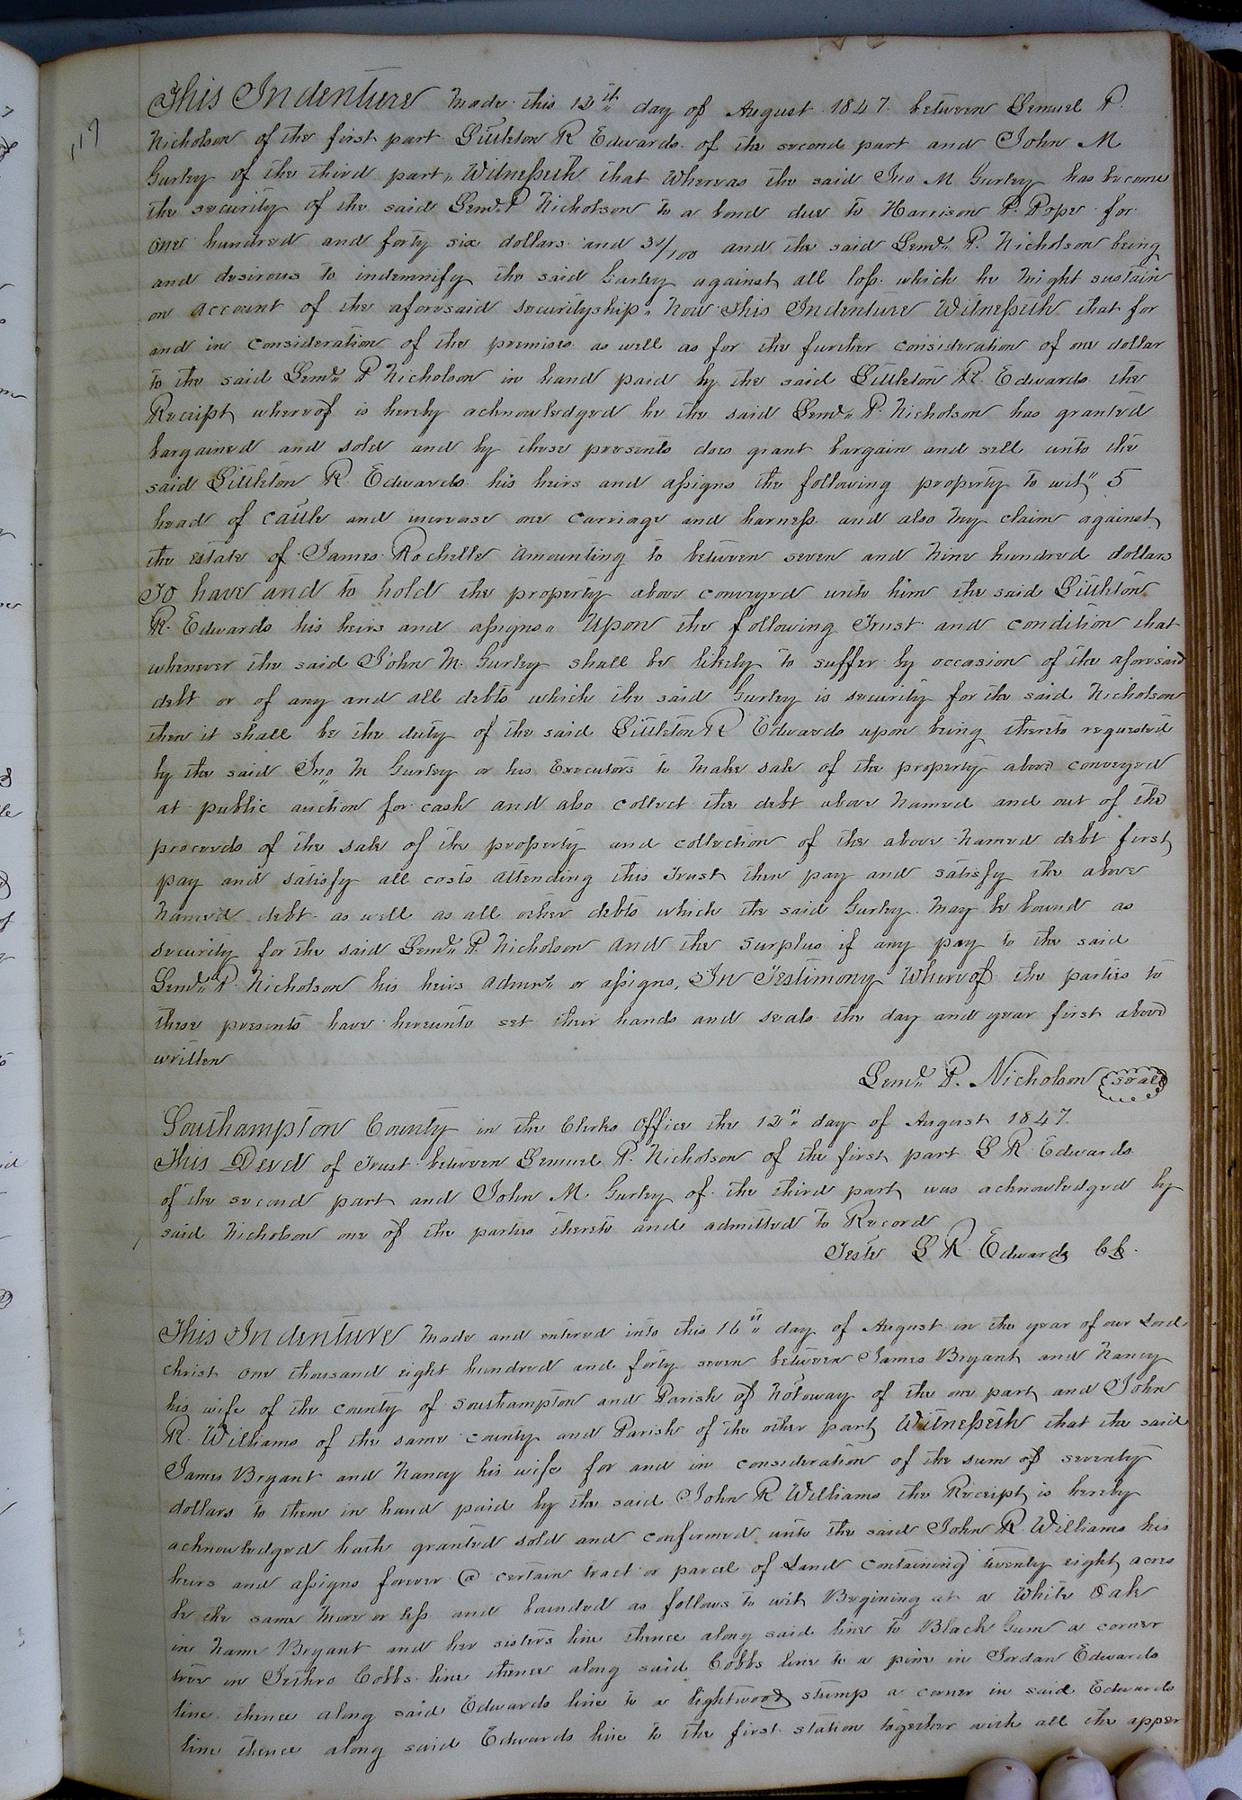 117
This Indenture Made this 12th day of August 1847 between Lemuel P.
Nicholson of the first part Littleton R Edwards of the second part and John M
Gurley of the third part, Witnesseth that Whereas the said Jno M Gurley has become
the security of the said Leml. P Nicholson to a bond due to Harrison P. Pope for
one hundred and forty six dollars and /100 and the said Leml. P. Nicholson being
and desirous to indemnify the said Gurley against all loss which he might sustain
on account of the aforesaid securityship. Now this Indenture Witnesseth that for
and in consideration of the premises as well as for the further consideration of one dollar
to the said Leml. P Nicholson in hand paid by the said Littleton R. Edwards the
Receipt whereof is hereby acknowledged he the said Leml. P. Nicholson has granted
bargained and sold and by these presents does grant bargain and sell unto the
said Littleton R Edwards his heirs and assigns the following property to wit" 5
head of cattle and increase one carriage and harness and also my claim against
the estate of James Rochelle amounting to between seven and Nine hundred dollars
To have and to hold the property above conveyed unto him the said Littleton
R. Edwards his heirs and assigns. Upon the following Trust and condition that
whenever the said John M. Gurley shall be likely to suffer by occasion of the aforesaid
debt or of any and all debts which the said Gurley is security for the said Nicholson
then it shall be the duty of the said Littleton R Edwards upon being thereto requested
by the said Jno M Gurley or his Executors to make sale of the property above conveyed
at public auction for cash and also collect the debt above named and out of the
proceeds of the sale of the property and collection of the above named debt first
pay and satisfy all costs attending this Trust then pay and satisfy the above
Named debt as well as all other debts which the said Gurley May be bound as
security for the said Leml. P. Nicholson and the surplus if any pay to the said
Leml. P. Nicholson his heirs admrs. or assigns, In Testimony Whereof the parties to
these presents have hereunto set their hands and seals the day and year first above
written
Leml. P. Nicholson seal
Southampton County in the Clerks Office the 12" day of August 1847.
This Deed of Trust between Lemuel P. Nicholson of the first part L R Edwards
of the second part and John M. Gurley of the third part was acknowledged by
said Nicholson one of the parties thereto and admitted to Record
Teste L R Edwards
This Indenture Made and entered into this 16th day of August in the year of our Lord
christ one thousand eight hundred and forty seven between James Bryant and Nancy
his wife of the county of Southampton and Parish of Notoway of the one part and John
R. Williams of the same county and Parish of the other part Witnesseth that the said
James Bryant and Nancy his wife for and in consideration of the sum of seventy
dollars to them in hand paid by the said John R Williams the Receipt is hereby
acknowledged hath granted sold and confirmed unto the said John R. Williams his
heirs and assigns forever @ certain tract or parcel of Land containing twenty eight acres
be the same more or less and bounded as follows to wit Begining at a White Oak
in Bryant and her sisters line thence along said line to Black Gum a corner
tree in Jethro Cobbs line thence along said Cobbs line to a pine in Jordan Edwards
line thence along said Edwards line to a lightwood stump a corner in said Edwards
line thence along said Edwards line to the first station together with all the apper